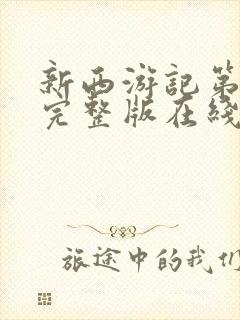 新西游記第
完整版在綫
旅途中的我们